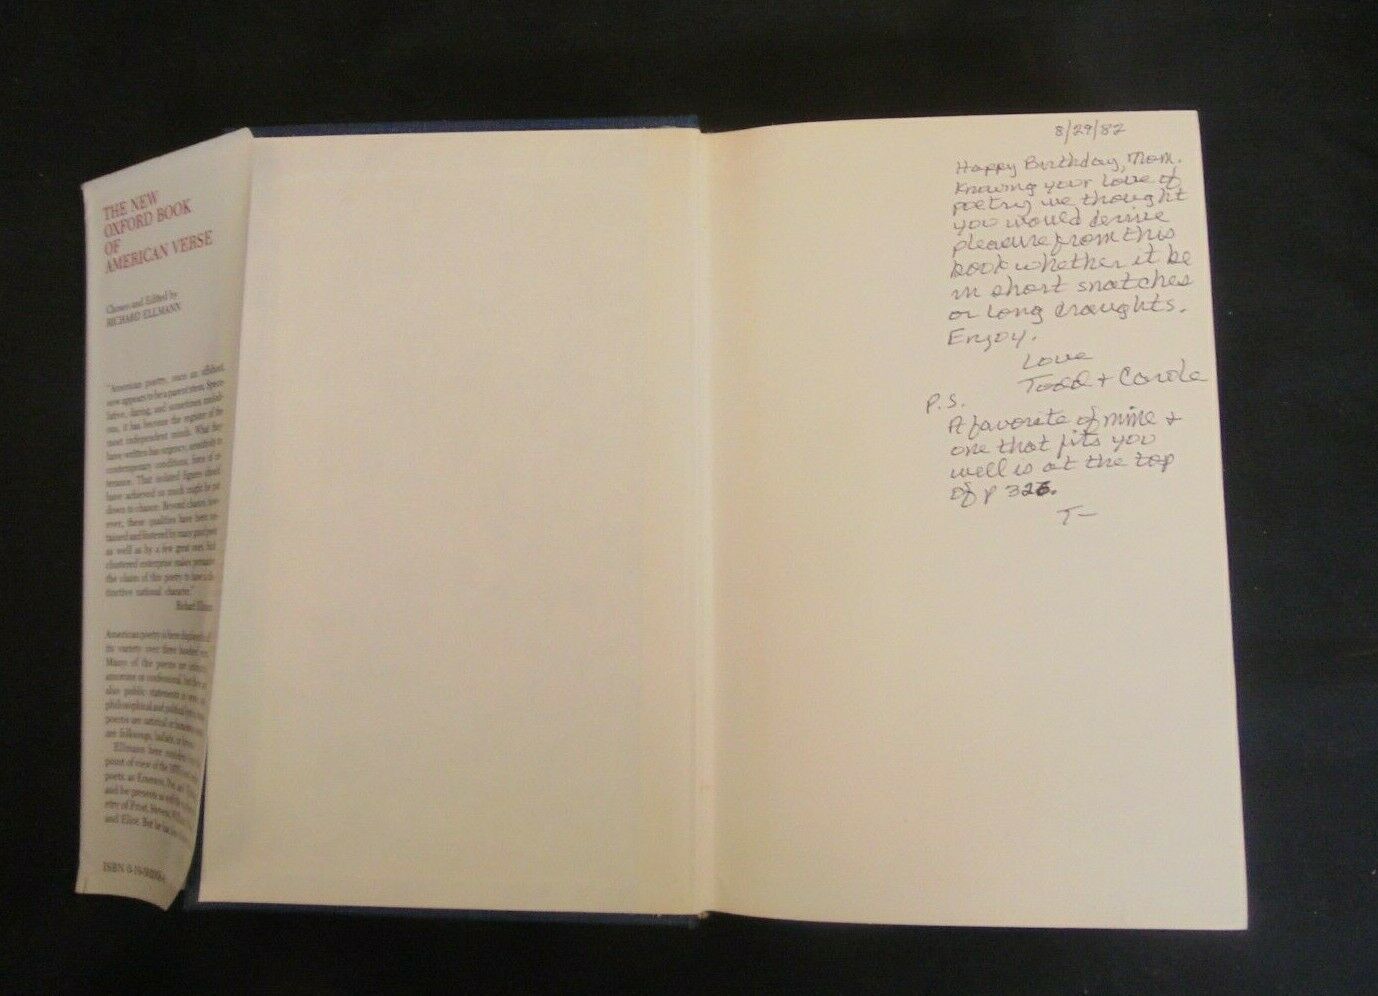 THE NEW
OXFORD BOOK
OF
AMERICAN VERSE
Chosen and Edited by
RICHARD ELLMANN
"American poetry, once an offshoot,
now appears to be a parent stem. Specu-
lative, daring, and sometimes
ous, it has become the register of the
most independent minds. What they
have written has urgency, sensitivity to
contemporary conditions, force of ut-
terance. That isolated figures should
have achieved so much might be put
down to chance. Beyond chance, how-
ever, these qualities have been
tained and fostered by many good poets
as well as by a few great ones;
chartered enterprise makes
the claim of this poetry to have a dis-
tinctive national character."
Richard Ellmann
American poetry is here displayed in
its variety over three hundred
Many of the poems are
amorous or confessional, but there are
also public statements
philosophical and political
poems are satirical or
are folksongs, ballads, or
Ellmann here
point of view of the
poets as Emerson, Poe and
and he presents
etry of Frost, Stevens,
and Eliot. But he has
ISBN 0-19-
8/29/82
Happy Birthday, Mom.
Knowing your love of
poetry we thought
you would derive
pleasure from this
book whether it be
in short snatches
or long draughts.
Enjoy.
Love
Todd + Carole
P.S.
A favorite of mine +
one that fits you
well is at the top
of p 326.
T—